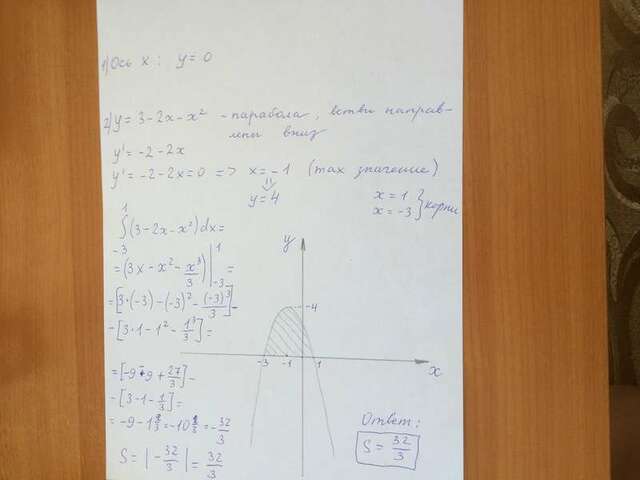 1) Ось x : y = 0
2) y = 3 - 2x - x² - парабола, ветви направ-
лены вниз
y' = -2 - 2x
y' = -2 - 2x = 0 => x = -1 (max значение)
y = 4
x = 1
x = -3 } корни
1
∫ (3 - 2x - x²) dx =
-3
= (3x - x² - x³/3) |¹₋₃ =
= [3·(-3) - (-3)² - (-3)³/3] -
- [3·1 - 1² - 1³/3] =
= [-9 - 9 + 27/3] -
- [3 - 1 - 1/3] =
= -9 - 1 2/3 = -10 2/3 = -32/3
S = |-32/3| = 32/3
y
4
-3
-1
1
x
Ответ:
S = 32/3